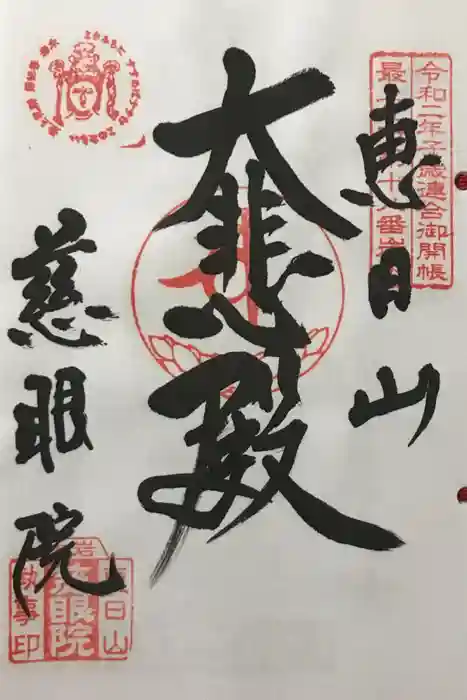 令和二年子歳連合御開帳
恵日山
大悲殿
慈眼院
恵日山
慈眼院
執事印